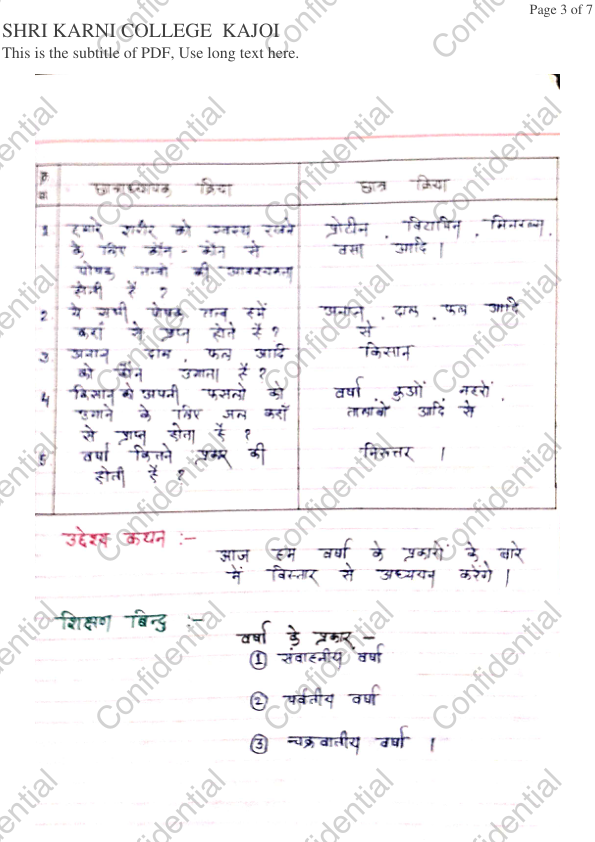 Page 3 of 7
SHRI KARNI COLLEGE KAJOI
This is the subtitle of PDF, Use long text here.
छात्राध्यापक क्रिया
छात्र क्रिया
1 हमारे शरीर को स्वस्थ रखने
के लिए कौन - कौन से
पोषक तत्वो की आवश्यकता
होती हैं ?
प्रोटीन , विटामिन , मिनरल्स ,
वसा आदि |
2 ये सभी पोषक तत्व हमें
कहाँ से प्राप्त होते हैं ?
अनाज , दाल , फल आदि
से
3 अनाज , दाल , फल आदि
को कौन उगाता हैं ?
किसान
4 किसान को अपनी फसलो को
उगाने के लिए जल कहाँ
से प्राप्त होता हैं ?
वर्षा , कुओं , नहरों ,
तालाबो आदि से
5 वर्षा कितने प्रकार की
होती हैं ?
निरुत्तर |
उद्देश्य कथन :-
आज हम वर्षा के प्रकारों के बारे
में विस्तार से अध्ययन करेंगे |
शिक्षण बिन्दु :-
वर्षा के प्रकार -
① संवाहनीय वर्षा
② पर्वतीय वर्षा
③ चक्रवातीय वर्षा |
Confidential